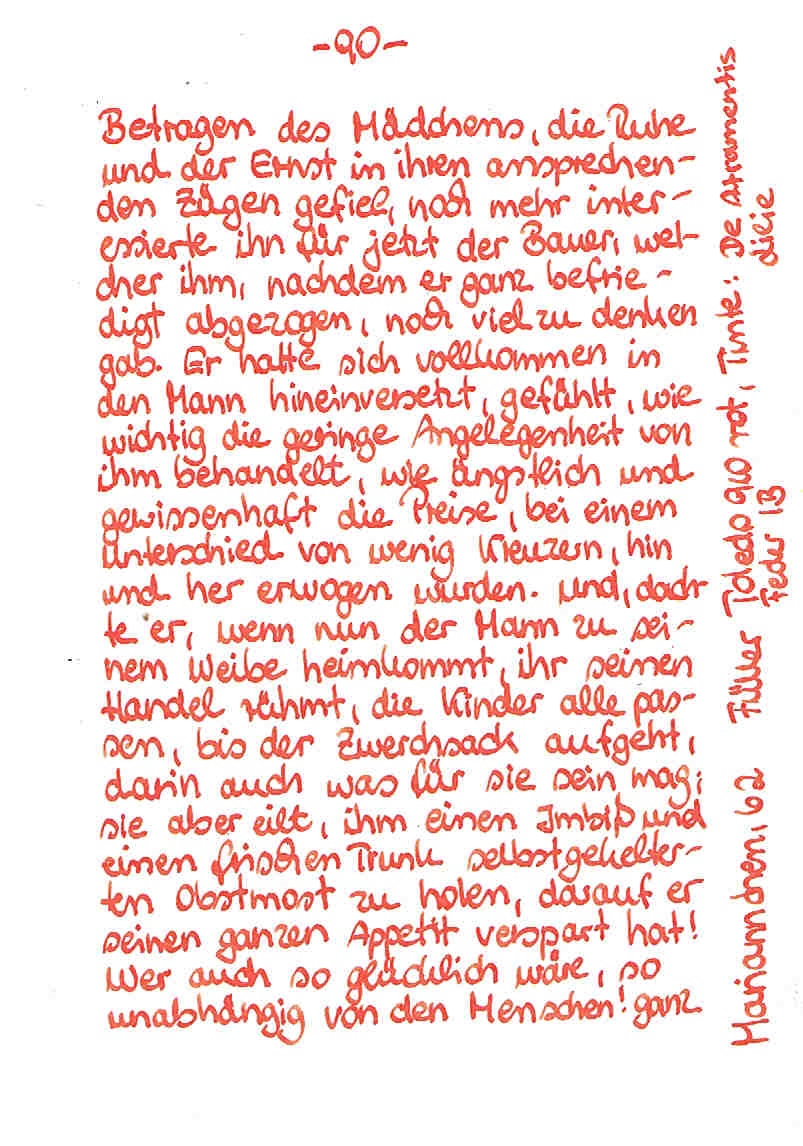 -90-
Betragen des Mädchens, die Ruhe
und der Ernst in ihren ansprechen-
den Zügen gefiel, noch mehr inter-
essierte ihn für jetzt der Bauer, wel-
cher ihm, nachdem er ganz befrie-
digt abgezogen, noch viel zu denken
gab. Er hatte sich vollkommen in
den Mann hineinversetzt, gefühlt, wie
wichtig die geringe Angelegenheit von
ihm behandelt, wie ängstlich und
gewissenhaft die Preise, bei einem
Unterschied von wenig Kreuzern, hin
und her erwogen wurden. Und, dach-
te er, wenn nun der Mann zu sei-
nem Weibe heimkommt, ihr seinen
Handel rühmt, die Kinder alle pas-
sen, bis der Zwerchsack aufgeht,
darin auch was für sie sein mag;
sie aber eilt, ihm einen Imbiß und
einen frischen Trunk selbstgekelter-
ten Obstmost zu holen, darauf er
seinen ganzen Appetit verspart hat!
Wer auch so glücklich wäre, so
unabhängig von den Menschen! ganz
Mariannchen, 62 Füller Toledo 910 rot, Tinte: De Atramentis
Feder 1B
Lilie